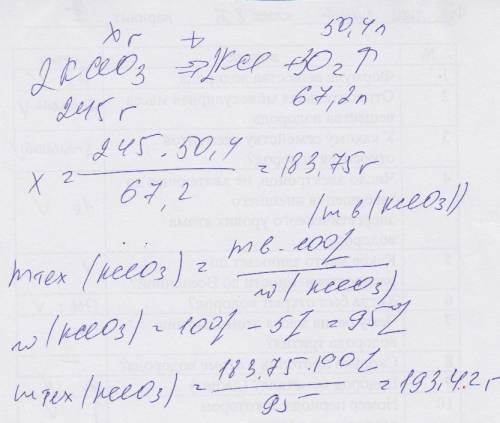 xг t 50,4л
2KClO3 => 2KCl + 3O2↑
245г 67,2л
x = 245 · 50,4 / 67,2 = 183,75г
/m в (KClO3)/
mтех (KClO3) = mв · 100% / w (KClO3)
w (KClO3) = 100% - 5% = 95%
mтех (KClO3) = 183,75 · 100% / 95 = 193,42г